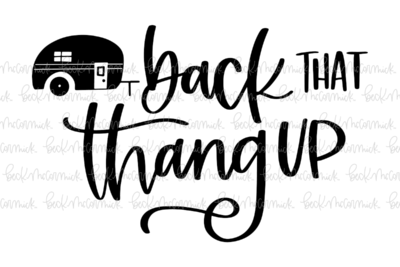 back THAT
thang UP